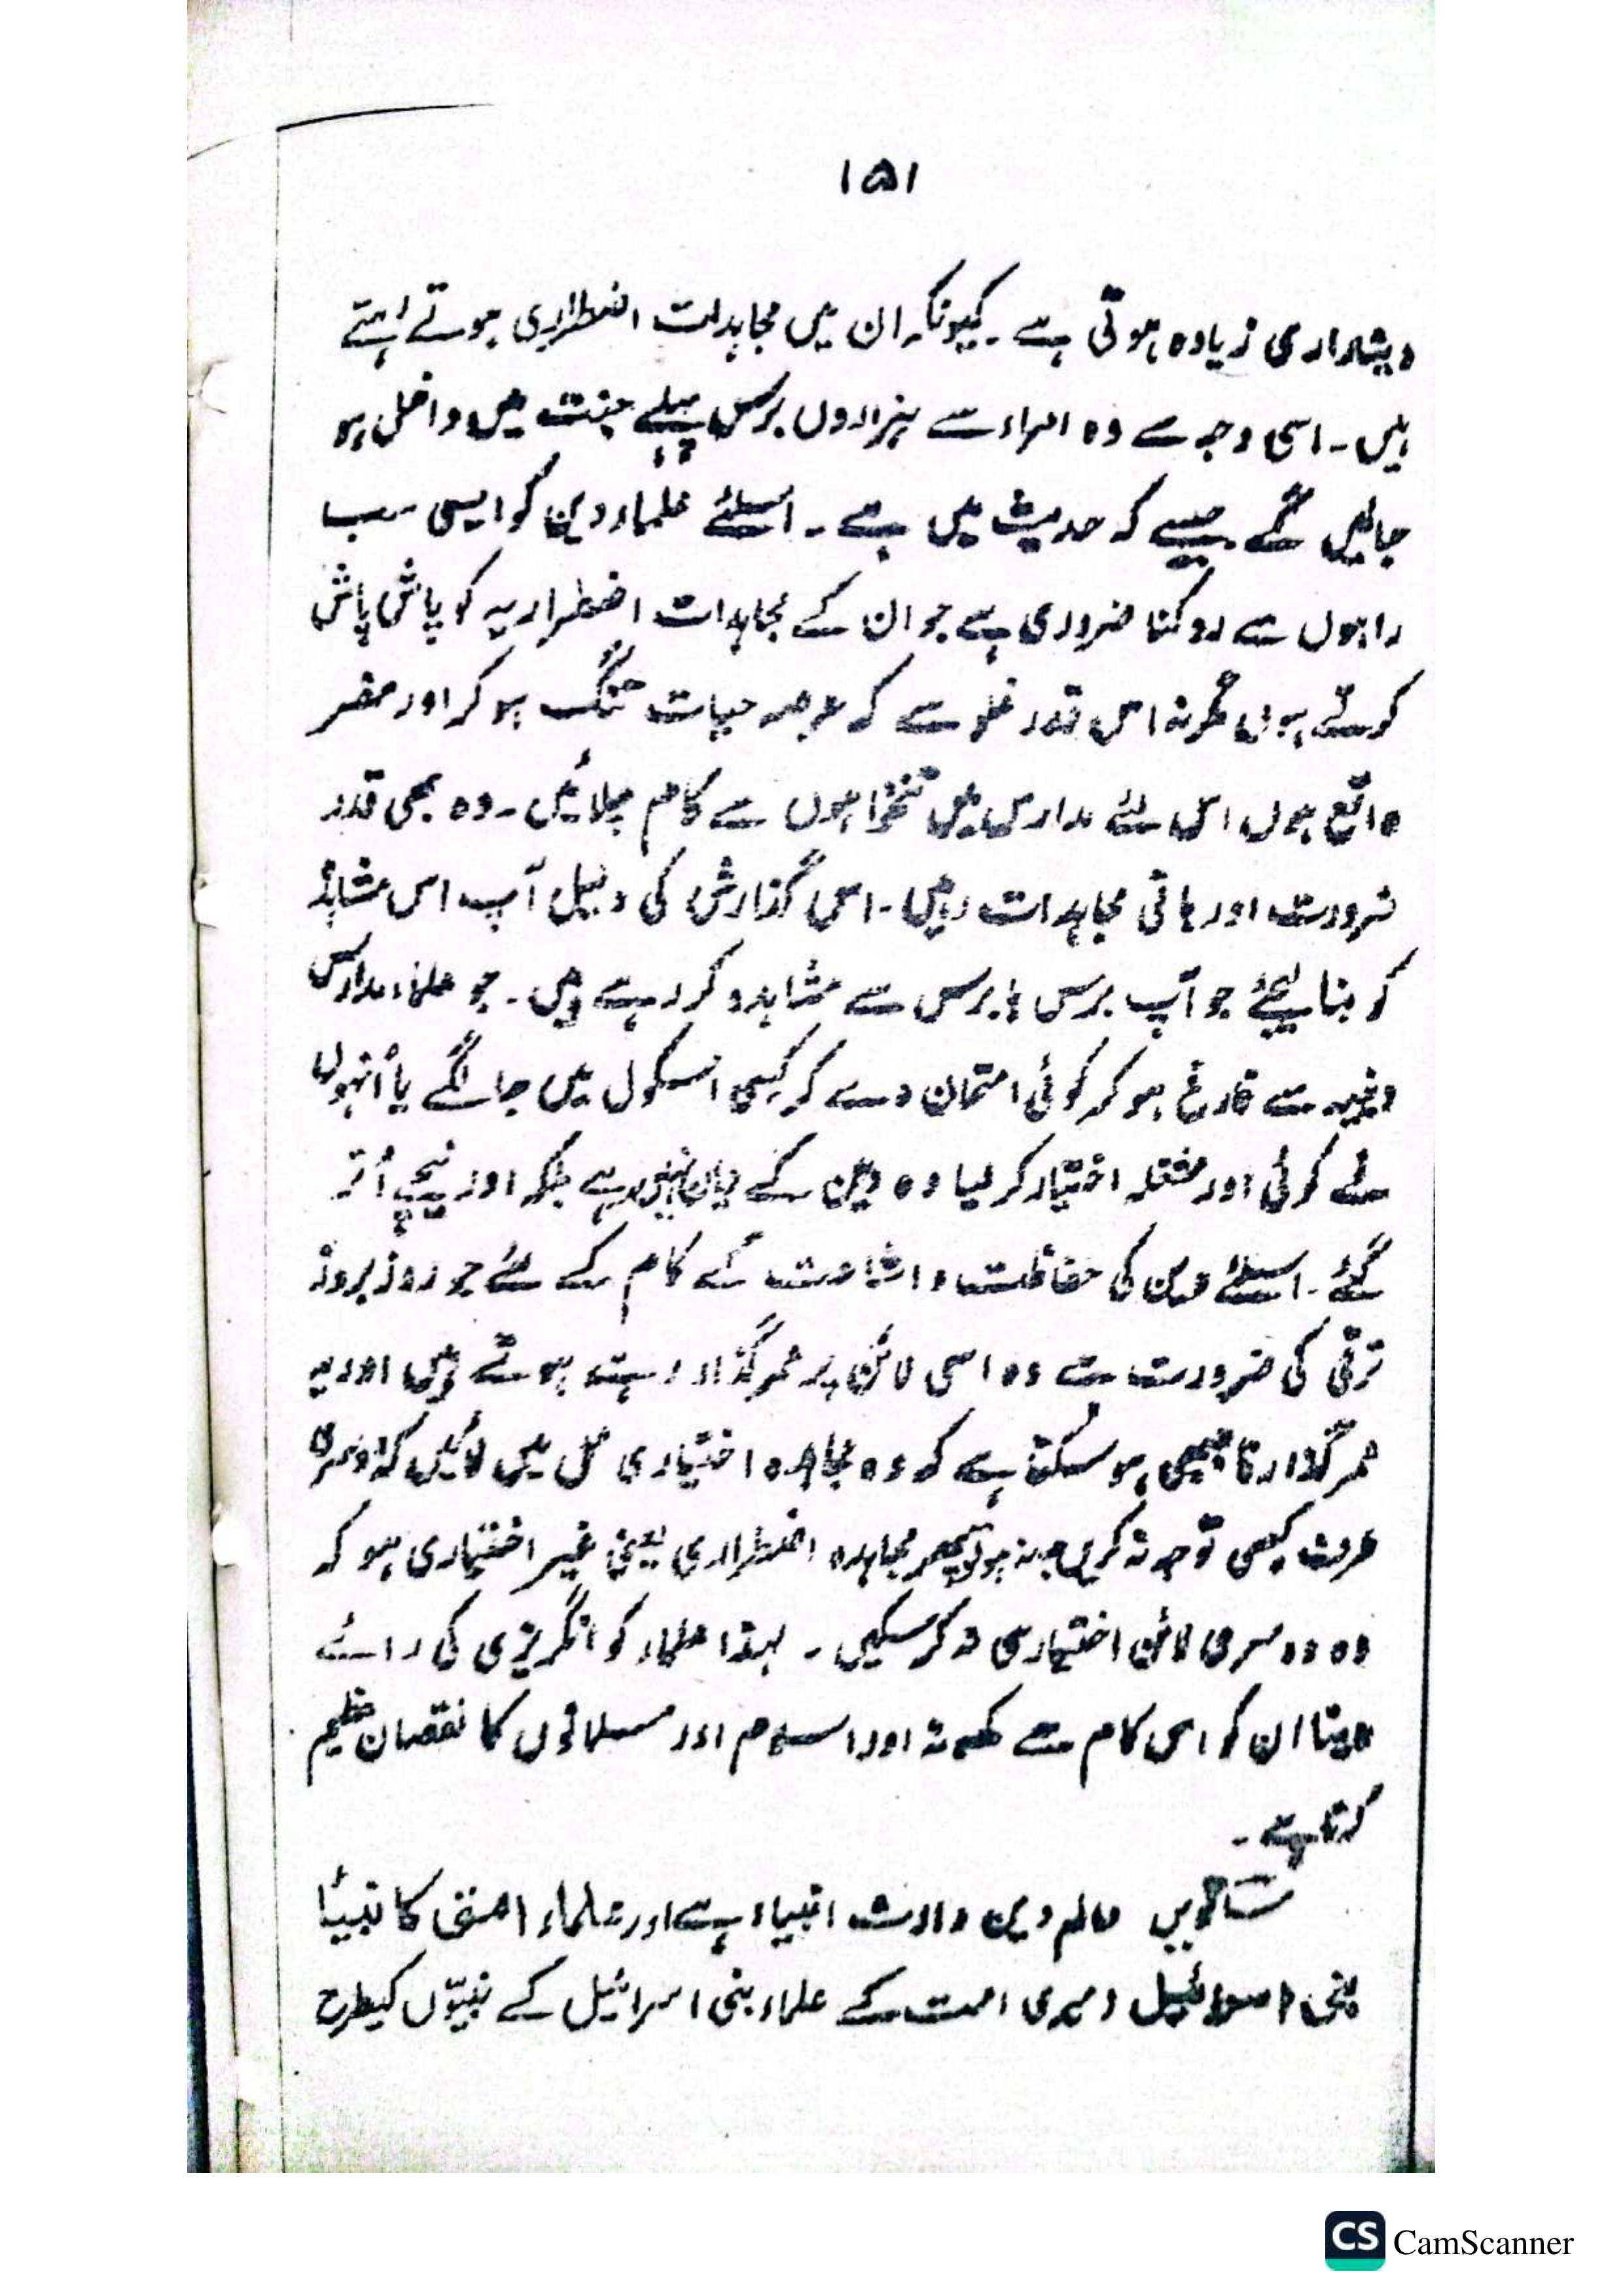 ۱۵۱
دینداری زیادہ ہوتی ہے ۔ کیونکہ ان میں مجاہدات اضطراری ہوتے رہتے
ہیں ۔ اسی وجہ سے وہ امراء سے ہزاروں برس پہلے جنت میں داخل ہو
جائیں گے جیسے کہ حدیث میں ہے ۔ اسلئے علماء دین کو ایسی سب
راہوں سے روکنا ضروری ہے جو ان کے مجاہدات اضطراریہ کو پاش پاش
کرتے ہوں مگر نہ اس قدر غلو سے کہ عرصہ حیات تنگ ہو کر اور مضر
واقع ہوں اس لئے مدارس میں تنخواہوں سے کام چلائیں ۔ وہ بھی قدر
ضرورت اور باقی مجاہدات رہیں ۔ اس گذارش کی دلیل آپ اس مشاہدہ
کو بنا لیجئے جو آپ برس ہا برس سے مشاہدہ کر رہے ہیں ۔ جو علماء مدارس
وغیرہ سے فارغ ہو کر کوئی امتحان دے کر کسی اسکول میں جا لگے یا اُنہوں
نے کوئی اور مشغلہ اختیار کر لیا وہ دین کے نہیں رہے بلکہ اور نیچے اُتر
گئے ۔ اسلئے دین کی حفاظت و اشاعت کے کام کے لئے جو روز بروز
ترقی کی ضرورت ہے وہ اسی لائن پر عمر گذار رہتے ہوتے ہیں اور یہ
عمر گذارنا جبھی ہو سکتا ہے کہ وہ مجاہدہ اختیاری عمل میں لائیں کہ دوسری
طرف کبھی توجہ نہ کریں یہ نہ ہو تو پھر مجاہدہ اضطراری یعنی غیر اختیاری ہو کہ
وہ دوسری لائن اختیار ہی نہ کر سکیں ۔ لہذا علماء کو انگریزی کی رائے
دینا ان کو اس کام سے کھونا اور اسلام اور مسلمانوں کا نقصان عظیم
کرنا ہے ۔
ساتویں عالم دین وارث انبیاء ہے اور علماء امتی کانبیاء
بنی اسرائیل میری امت کے علماء بنی اسرائیل کے نبیّوں کیطرح
CS CamScanner